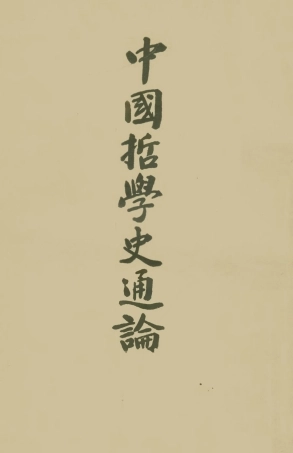 中國哲學史通論